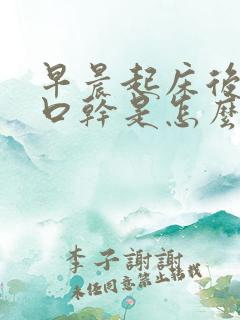 早晨起床後
口幹是怎麼
李子謝謝
未任同意禁止轉載